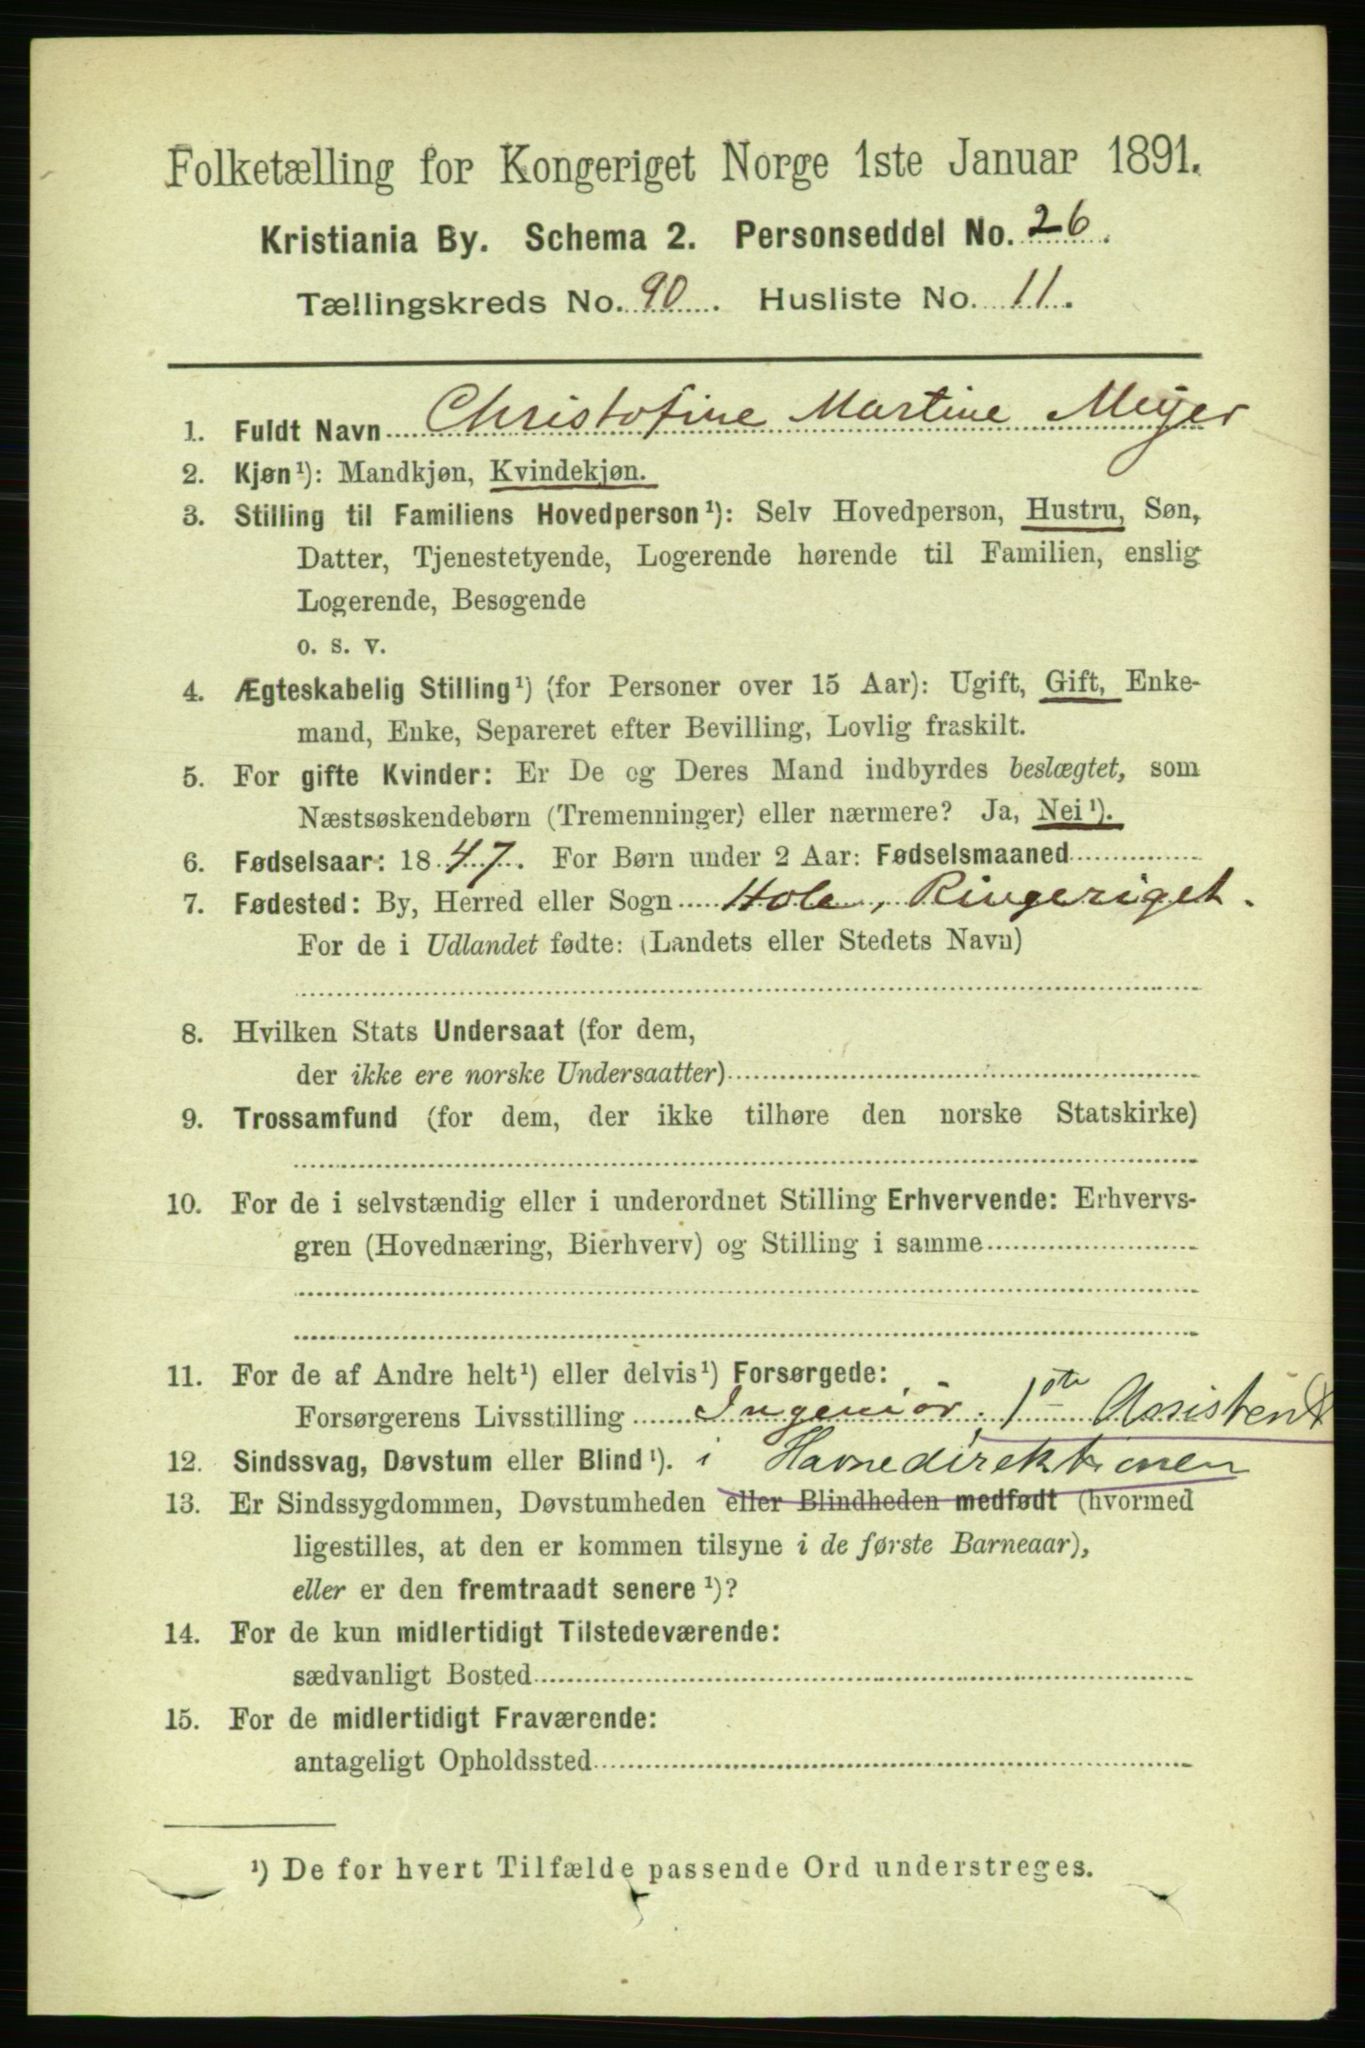 Folketælling for Kongeriget Norge 1ste Januar 1891.
Kristiania By. Schema 2. Personseddel No. 26.
Tællingskreds No. 90. Husliste No. 11.
1. Fuldt Navn Christofine Martine Meyer
2. Kjøn¹): Mandkjøn, Kvindekjøn.
3. Stilling til Familiens Hovedperson¹): Selv Hovedperson, Hustru, Søn,
Datter, Tjenestetyende, Logerende hørende til Familien, enslig
Logerende, Besøgende
o. s. v.
4. Ægteskabelig Stilling¹) (for Personer over 15 Aar): Ugift, Gift, Enke-
mand, Enke, Separeret efter Bevilling, Lovlig fraskilt.
5. For gifte Kvinder: Er De og Deres Mand indbyrdes beslægtet, som
Næstsøskendebørn (Tremenninger) eller nærmere? Ja, Nei¹).
6. Fødselsaar: 1847. For Børn under 2 Aar: Fødselsmaaned
7. Fødested: By, Herred eller Sogn Hole, Ringeriget.
For de i Udlandet fødte: (Landets eller Stedets Navn)
8. Hvilken Stats Undersaat (for dem,
der ikke ere norske Undersaatter)
9. Trossamfund (for dem, der ikke tilhøre den norske Statskirke)
10. For de i selvstændig eller i underordnet Stilling Erhvervende: Erhvervs-
gren (Hovednæring, Bierhverv) og Stilling i samme
11. For de af Andre helt¹) eller delvis¹) Forsørgede:
Forsørgerens Livsstilling Ingeniør, 1ste Assistent
12. Sindssvag, Døvstum eller Blind¹). i Havnedirektionen
13. Er Sindssygdommen, Døvstumheden eller Blindheden medfødt (hvormed
ligestilles, at den er kommen tilsyne i de første Barneaar),
eller er den fremtraadt senere¹)?
14. For de kun midlertidigt Tilstedeværende:
sædvanligt Bosted
15. For de midlertidigt Fraværende:
antageligt Opholdssted
¹) De for hvert Tilfælde passende Ord understreges.